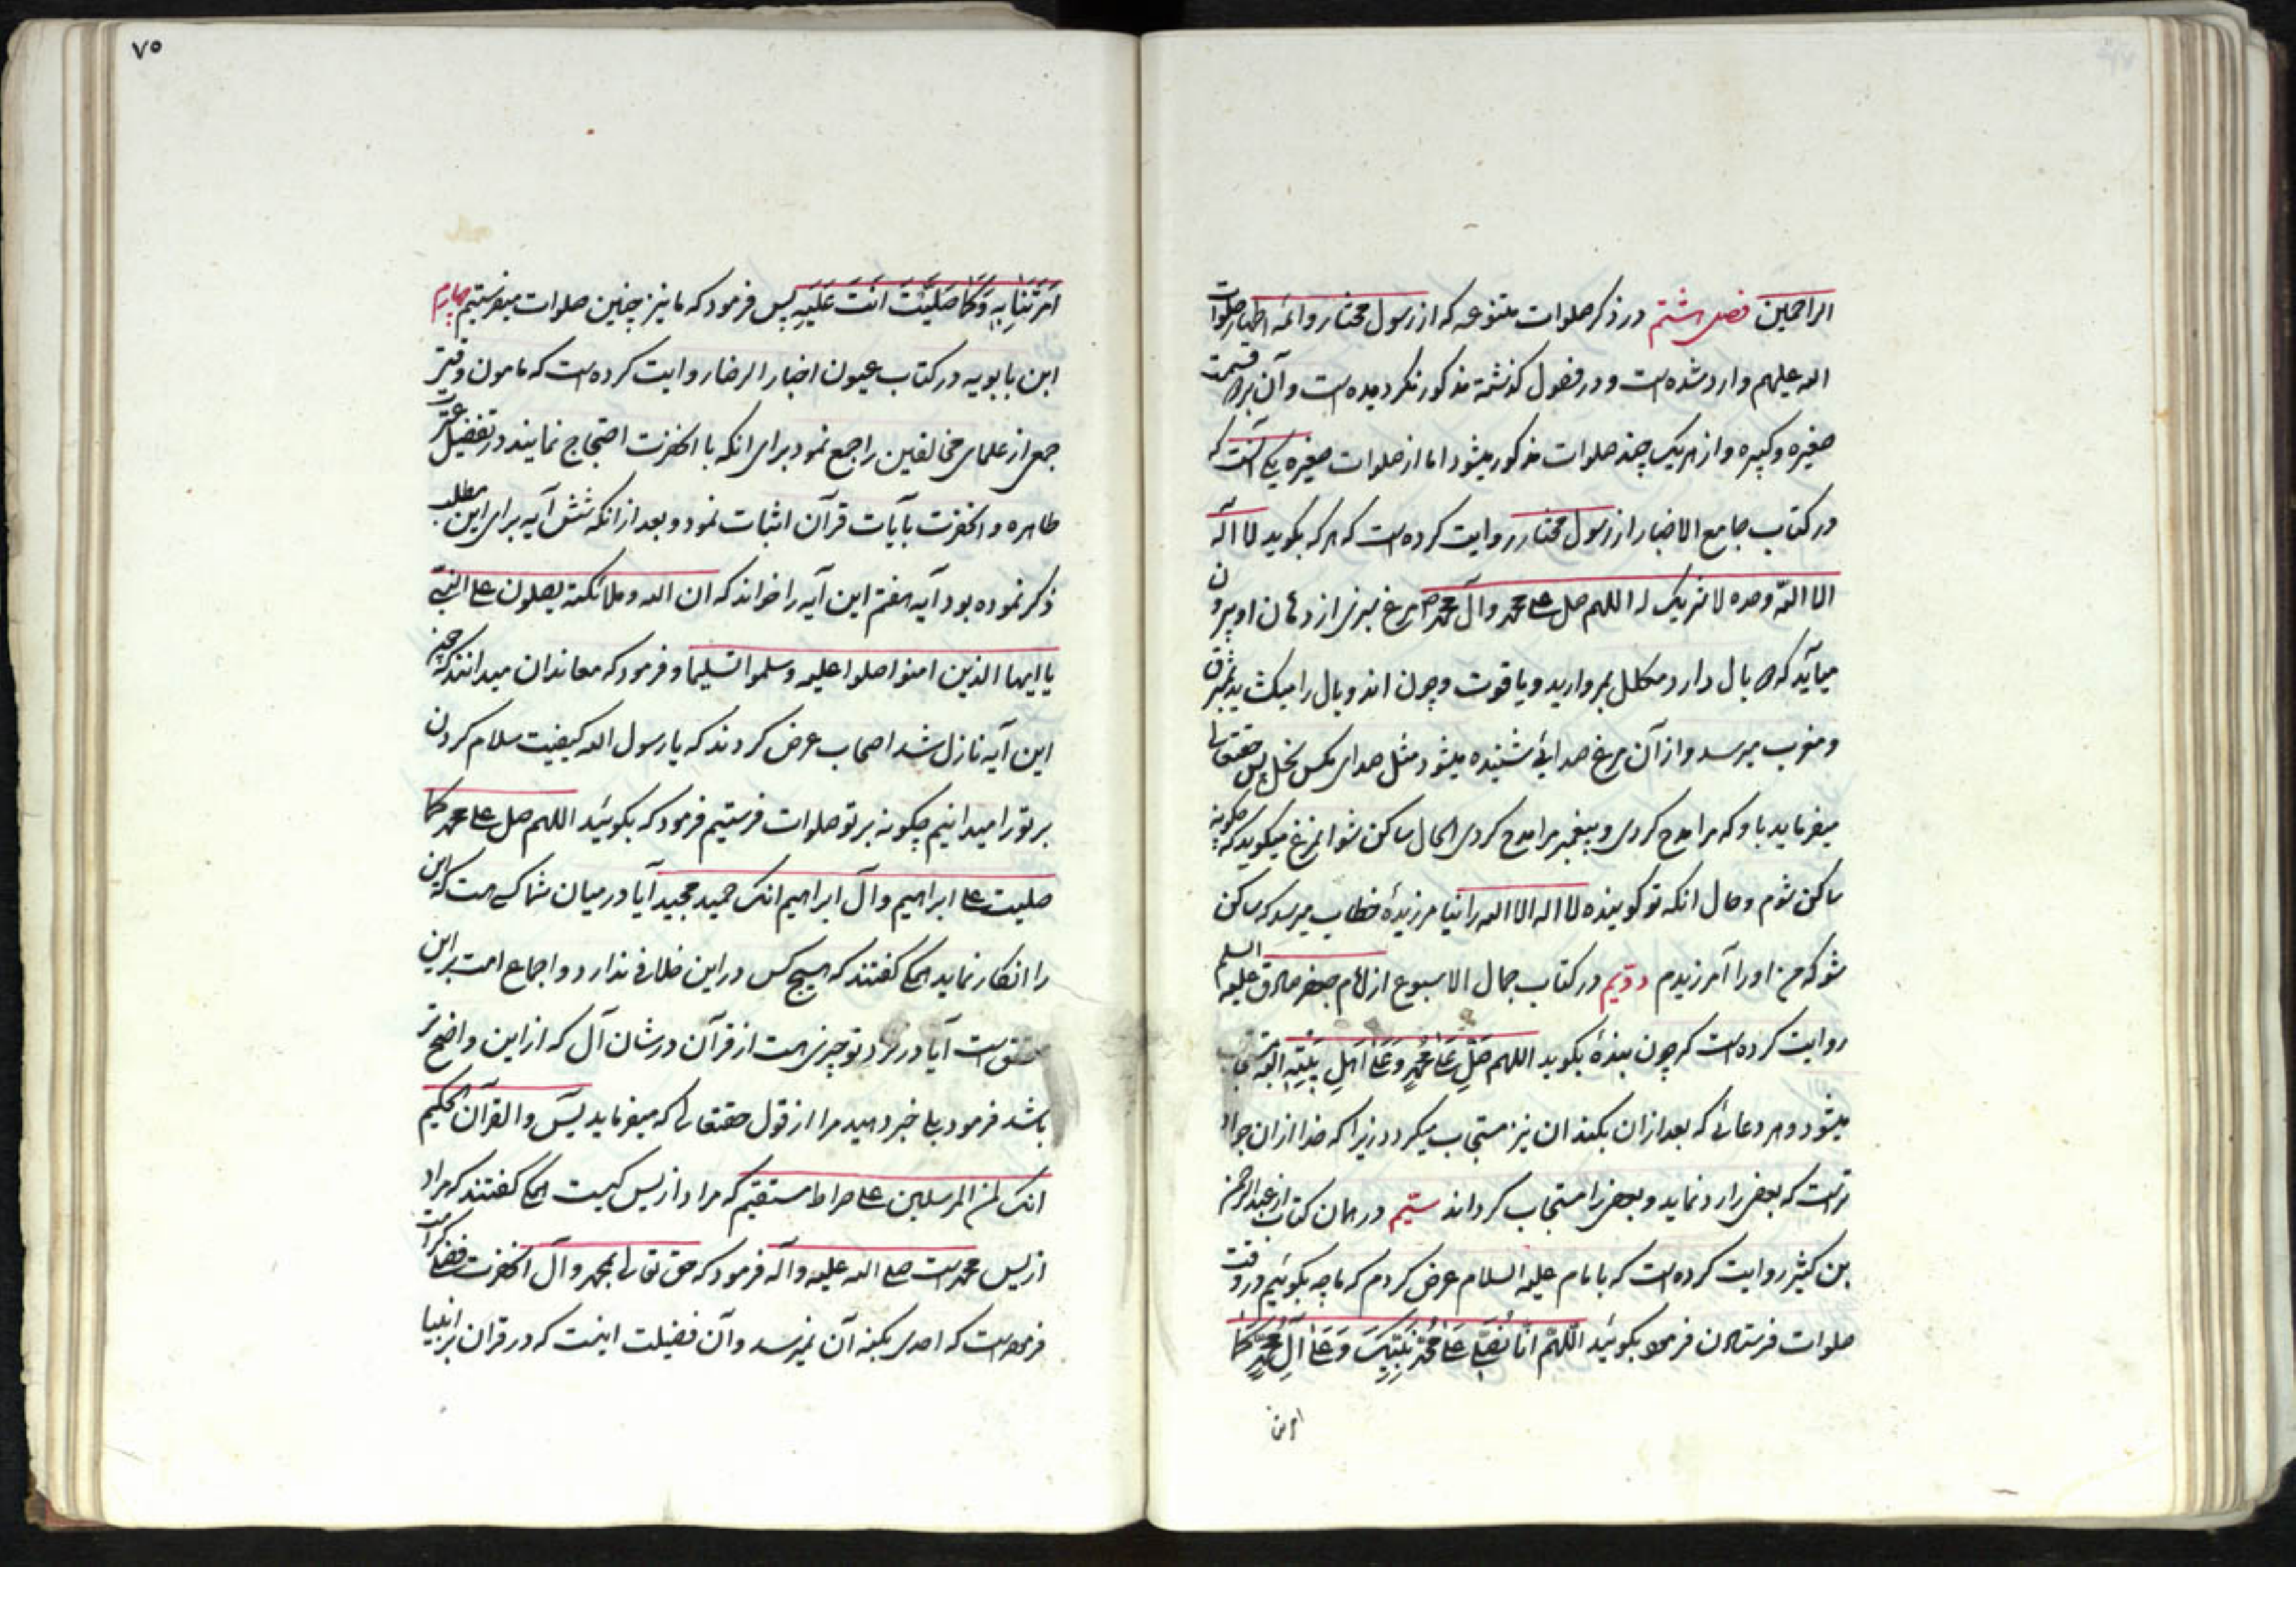 الراحمین فصل هشتم در ذکر صلوات متنوعه که از رسول مختار و ائمه اطهار صلوات
الله علیهم وارد شده است و در فصول گذشته مذکور نگردیده است و آن بر دو قسمت
صغیره و کبیره و از هریک چند صلوات مذکور میشود اما از صلوات صغیره یکی آنست که
در کتاب جامع الاخبار از رسول مختار روایت کرده است که هر که بگوید لا اله
الا الله وحده لا شریک له اللهم صل علی محمد و آل محمد مرغ سبزی از دهان او بیرون
میآید که دو بال دارد مکلل بمروارید و یاقوت و چون آن دو بال را میکشد بمشرق
و مغرب میرسد و از آن مرغ صدائی شنیده میشود مثل صدای مکس نحل پس حقتعالی
میفرماید باو که مرا مدح کردی و پیغمبر مرا مدح کردی الحال ساکن شو آنمرغ میگوید که چگونه
ساکن شوم و حال آنکه تو گوینده لا اله الا الله را نیامرزیدهٔ خطاب میرسد که ساکن
شو که من او را آمرزیدم دویم در کتاب جمال الاسبوع از امام جعفر صادق علیه السلم
روایت کرده است که چون بندهٔ بگوید اللهم صَلِّ عَلیٰ مُحَمَّدٍ وَعَلیٰ اَهلِ بَیْتِهِ البته
میشود و هر دعائی که بعد از آن بکند آن نیز مستجاب میگردد زیرا که خدا از آن جواد
تر است که بعضی را رد نماید و بعضی را مستجاب گرداند سیّم در همان کتاب از عبدالرحمن
بن کثیر روایت کرده است که بامام علیه السلام عرض کردم که ما چه بگوئیم در وقت
صلوات فرستادن فرمود بگوئید اَللّهُمَّ اِنّا نُصَلّی عَلیٰ مُحَمَّدٍ نَبِیِّکَ وَعَلیٰ آلِ مُحَمَّدٍ کَما
امرتنا
٧٥
اَمَرْتَنا بِهِ وَکَما صَلَّیْتَ اَنْتَ عَلَیْهِ پس فرمود که ما نیز چنین صلوات میفرستیم چهارم
ابن بابویه در کتاب عیون اخبار الرضا روایت کرده است که مامون وقتی
جمعی از علمای مخالفین را جمع نمود برای آنکه با آنحضرت احتجاج نمایند در تفضیل عترت
طاهره و آنحضرت بآیات قرآن اثبات نمود و بعد از آنکه شش آیه برای این مطلب
ذکر نموده بود آیه هفتم این آیه را خواند که ان الله وملائکته یصلون علی النبی
یا ایها الذین امنوا صلوا علیه وسلموا تسلیما و فرمود که معاندان میدانند که چون
این آیه نازل شد اصحاب عرض کردند که یا رسول الله کیفیت سلام کردن
بر تو را میدانیم چگونه بر تو صلوات فرستیم فرمود که بگوئید اللهم صل علی محمد کما
صلیت علی ابراهیم وآل ابراهیم انک حمید مجید آیا در میان شما کسی هست که این
را انکار نماید همگی گفتند که هیچ کس در این خلافی ندارد و اجماع امت بر این
متفق است آیا در نزد تو چیزی هست از قرآن در شان آل که از این واضح تر
باشد فرمود بلی خبر دهید مرا از قول حقتعالی که میفرماید یس والقرآن الحکیم
انک لمن المرسلین علی صراط مستقیم که مراد از یس کیست همگی گفتند که مراد
از یس محمد است صلی الله علیه وآله فرمود که حق تعالی بمحمد و آل آنحضرت فضلی کرامت
فرموده است که احدی بکنه آن نمیرسد و آن فضیلت اینست که در قرآن بر انبیا